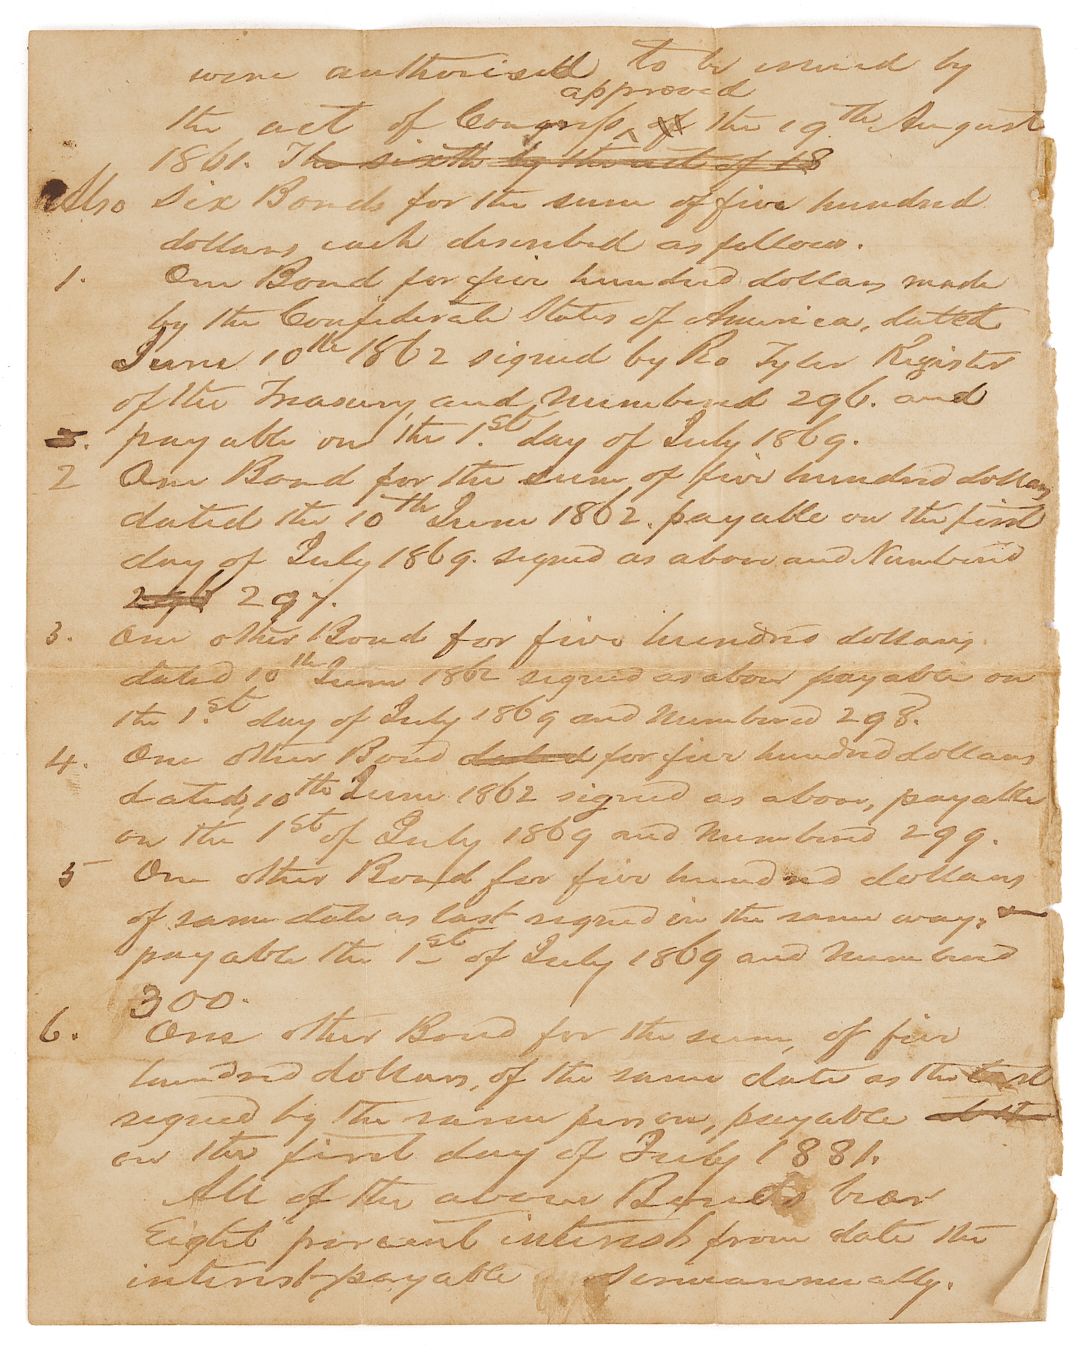 were authorised to be issued by
approved
the act of Congress ^ of the 19th August
1861. The sixth by the act of 18
Also Six Bonds for the sum of five hundred
dollars each described as follows.
1. One Bond for five hundred dollars made
by the Confederate States of America, dated
June 10th 1862 signed by Ro Tyler Register
of the Treasury and Numbered 296. and
3. payable on the 1st day of July 1869.
2 One Bond for the sum of five hundred dollars
dated the 10th June 1862. payable on the first
day of July 1869. signed as above and Numbered
296 297.
3. One other Bond for five hundred dollars
dated 10th June 1862 signed as above payable on
the 1st day of July 1869 and numbered 298.
4. One other Bond dated for five hundred dollars
dated 10th June 1862 signed as above, payable
on the 1st of July 1869 and numbered 299.
5 One other Bond for five hundred dollars
of same date as last signed in the same way, &
payable the 1st of July 1869 and numbered
300.
6. One other Bond for the sum, of five
hundred dollars, of the same date as the last
signed by the same person, payable
on the first day of July 1881.
All of the above Bonds bear
Eight per cent interest from date the
interest payable semiannually.